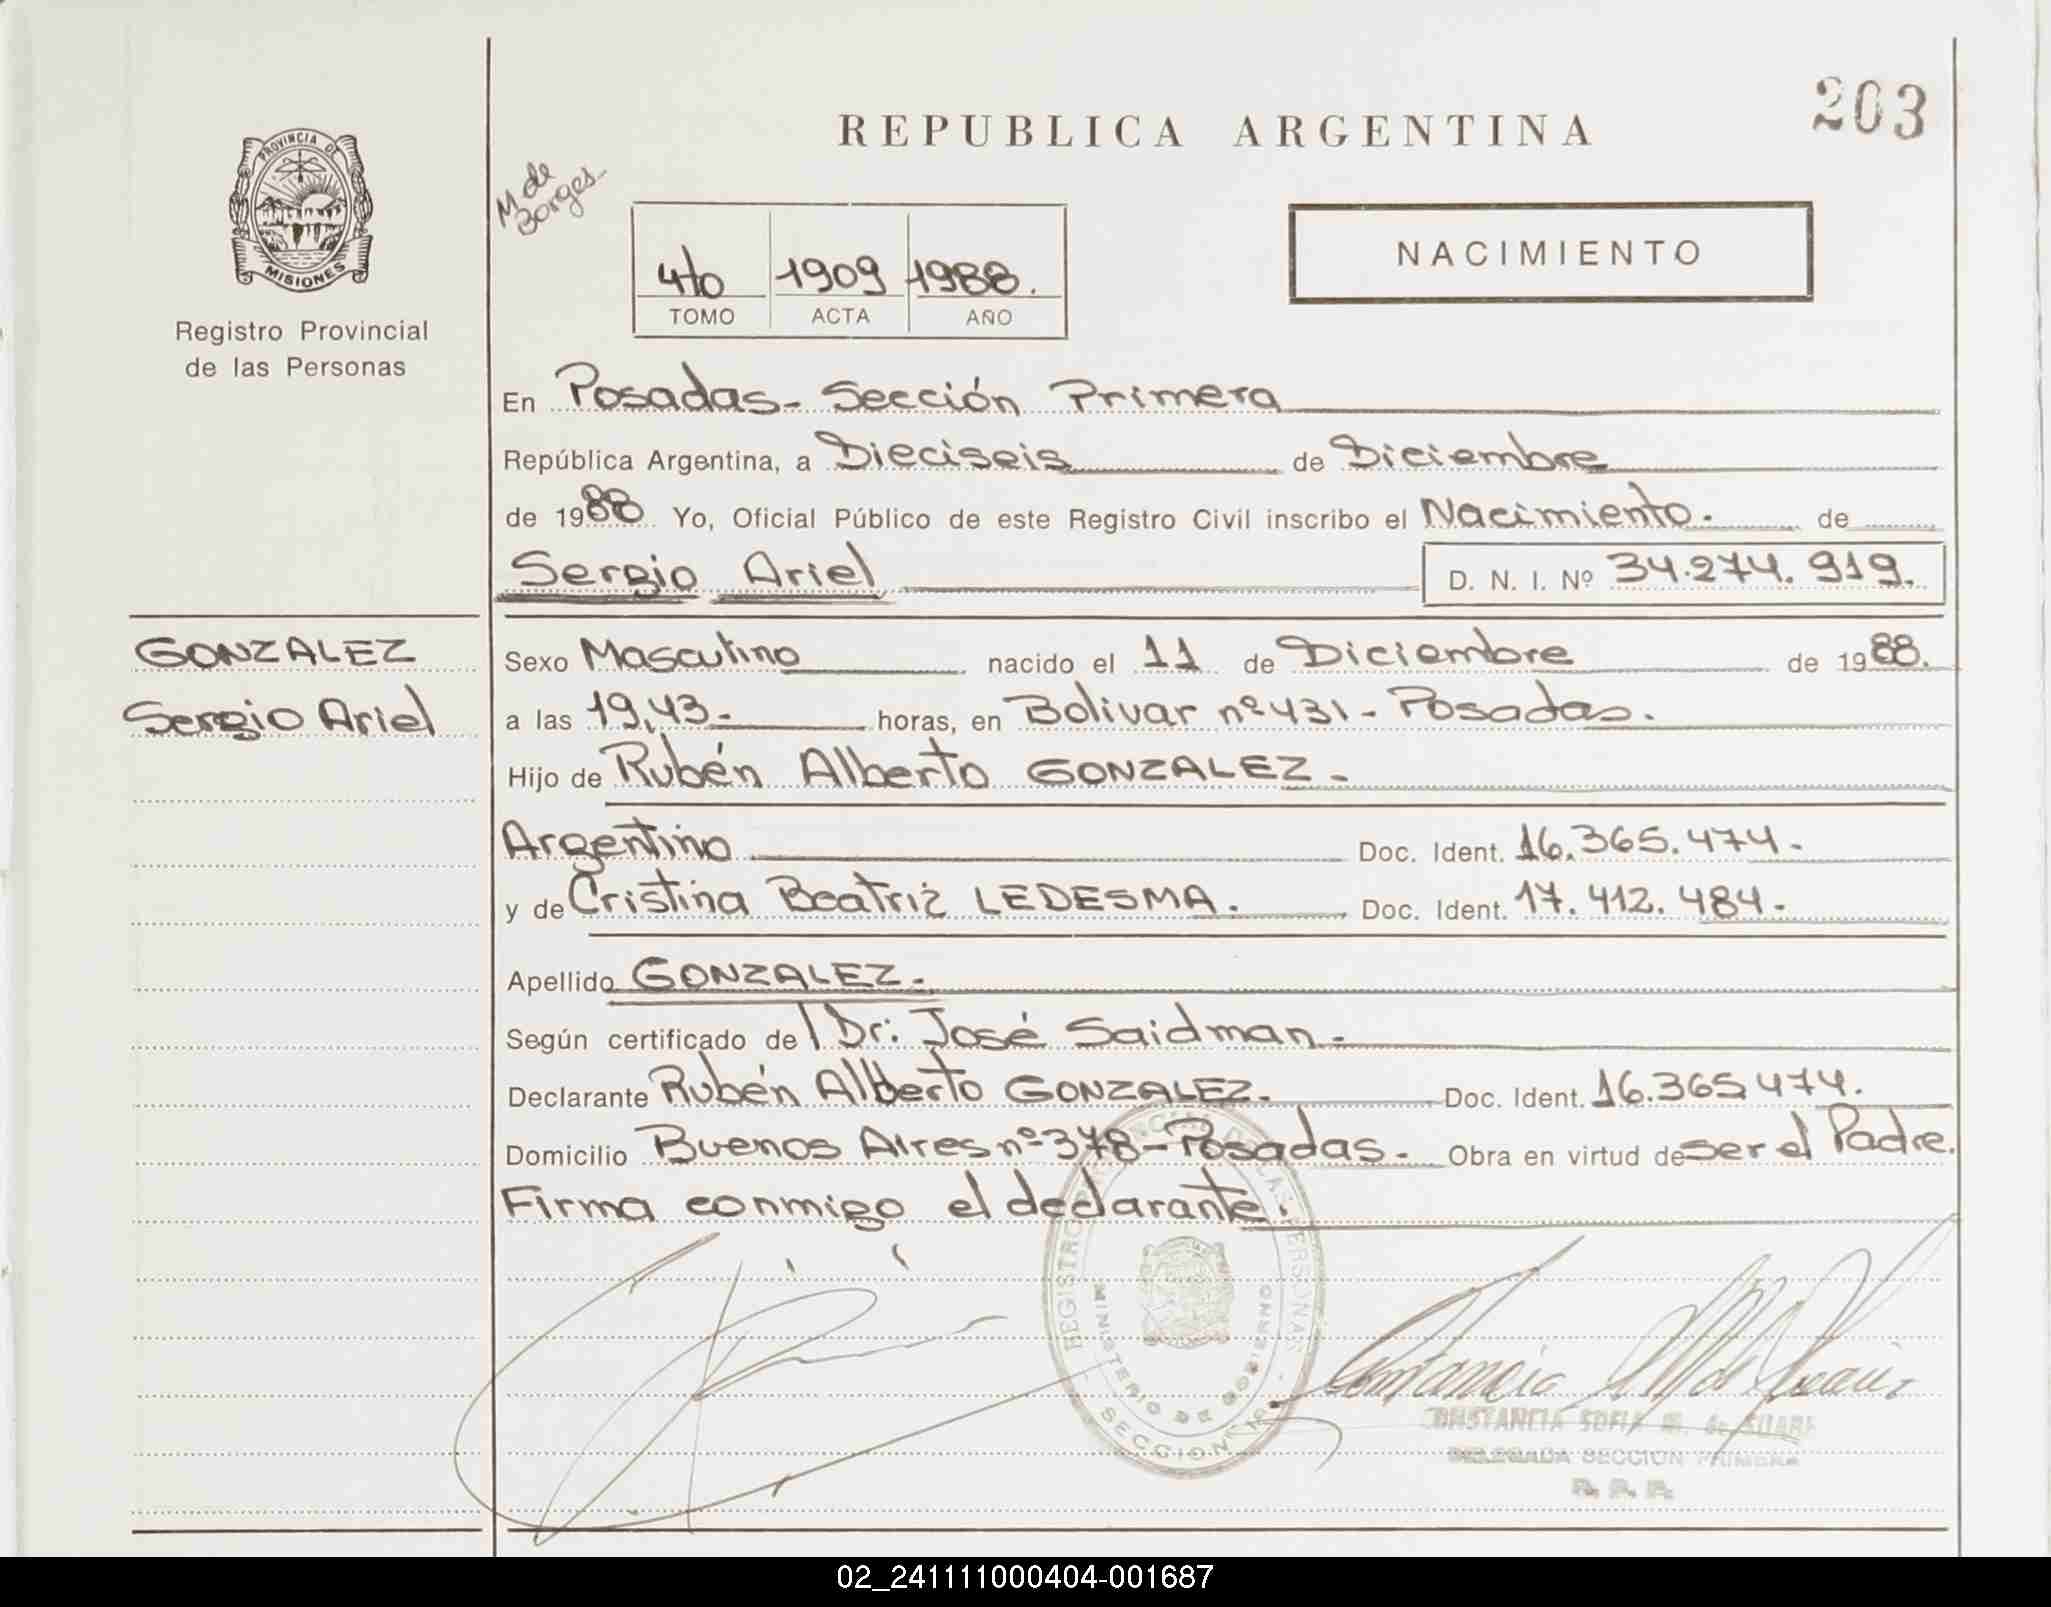 203
REPUBLICA ARGENTINA
PROVINCIA DE
MISIONES
Registro Provincial
de las Personas
M de
Borges
NACIMIENTO
4to 1909 1988.
TOMO ACTA AÑO
En Posadas - Sección Primera
República Argentina, a Dieciseis de Diciembre
de 1988 Yo, Oficial Público de este Registro Civil inscribo el Nacimiento. de
Sergio Ariel D. N. I. Nº 34.274.919.
GONZALEZ
Sergio Ariel
Sexo Masculino nacido el 11 de Diciembre de 1988.
a las 19,43.- horas, en Bolivar nº 431 - Posadas.
Hijo de Rubén Alberto GONZALEZ -
Argentino Doc. Ident. 16.365.474.-
y de Cristina Beatriz LEDESMA. Doc. Ident. 17.412.484.-
Apellido GONZALEZ.-
Según certificado de Dr. José Saidman.-
Declarante Rubén Alberto GONZALEZ.- Doc. Ident. 16.365.474.
Domicilio Buenos Aires nº 378 - Posadas.- Obra en virtud de ser el Padre.
Firma conmigo el declarante.
REGISTRO PERSONAS
MINISTERIO DE GOBIERNO
SECCION
CONSTANCIA SOFIA M. de
DELEGADA SECCION PRIMERA
R. P. P.
02_241111000404-001687